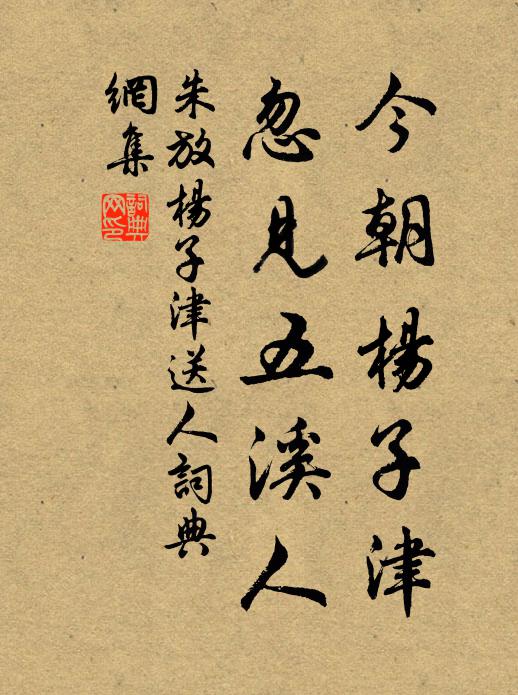 今朝楊子津
忽見五溪人
朱放楊子津送人詞典
網集
詞典
网印